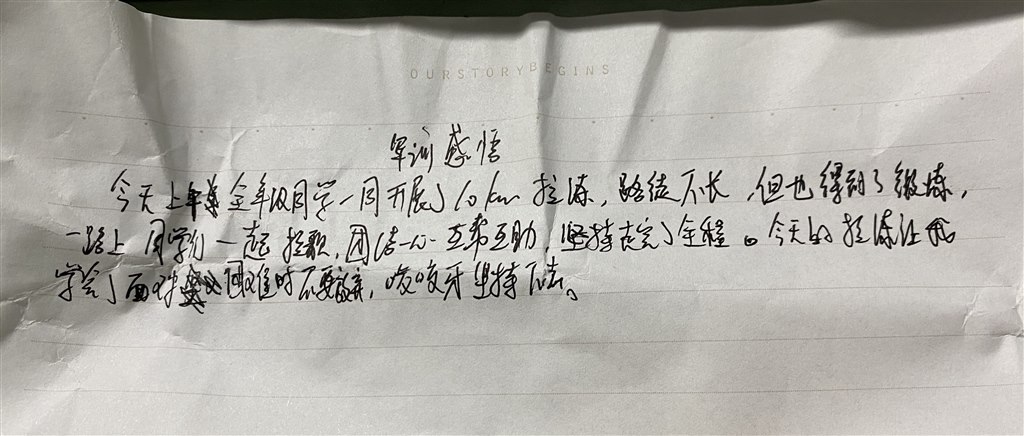 OURSTORYBEGINS
军训感悟
今天上午全年级同学一同开展了10km拉练,路途不长,但也得到了锻炼,
一路上同学们一起拉歌,团结一心互帮互助,坚持走完了全程。今天的拉练让我
学会了面对困难时不要放弃,咬咬牙坚持下去。